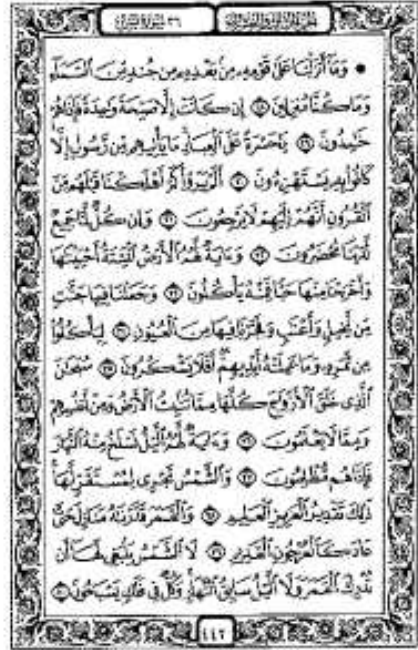 الجزء الثالث والعشرون
٣٦ سورة يس
• وَمَا أَنزَلْنَا عَلَىٰ قَوْمِهِ مِنۢ بَعْدِهِ مِن جُندٍ مِّنَ السَّمَاءِ
وَمَا كُنَّا مُنزِلِينَ ۝٢٨ إِن كَانَتْ إِلَّا صَيْحَةً وَٰحِدَةً فَإِذَا هُمْ
خَٰمِدُونَ ۝٢٩ يَٰحَسْرَةً عَلَى الْعِبَادِ مَا يَأْتِيهِم مِّن رَّسُولٍ إِلَّا
كَانُوا بِهِ يَسْتَهْزِءُونَ ۝٣٠ أَلَمْ يَرَوْا كَمْ أَهْلَكْنَا قَبْلَهُم مِّنَ
الْقُرُونِ أَنَّهُمْ إِلَيْهِمْ لَا يَرْجِعُونَ ۝٣١ وَإِن كُلٌّ لَّمَّا جَمِيعٌ
لَّدَيْنَا مُحْضَرُونَ ۝٣٢ وَءَايَةٌ لَّهُمُ الْأَرْضُ الْمَيْتَةُ أَحْيَيْنَٰهَا
وَأَخْرَجْنَا مِنْهَا حَبًّا فَمِنْهُ يَأْكُلُونَ ۝٣٣ وَجَعَلْنَا فِيهَا جَنَّٰتٍ
مِّن نَّخِيلٍ وَأَعْنَٰبٍ وَفَجَّرْنَا فِيهَا مِنَ الْعُيُونِ ۝٣٤ لِيَأْكُلُوا
مِن ثَمَرِهِ وَمَا عَمِلَتْهُ أَيْدِيهِمْ أَفَلَا يَشْكُرُونَ ۝٣٥ سُبْحَٰنَ
الَّذِي خَلَقَ الْأَزْوَٰجَ كُلَّهَا مِمَّا تُنۢبِتُ الْأَرْضُ وَمِنْ أَنفُسِهِمْ
وَمِمَّا لَا يَعْلَمُونَ ۝٣٦ وَءَايَةٌ لَّهُمُ اللَّيْلُ نَسْلَخُ مِنْهُ النَّهَارَ
فَإِذَا هُم مُّظْلِمُونَ ۝٣٧ وَالشَّمْسُ تَجْرِي لِمُسْتَقَرٍّ لَّهَا
ذَٰلِكَ تَقْدِيرُ الْعَزِيزِ الْعَلِيمِ ۝٣٨ وَالْقَمَرَ قَدَّرْنَٰهُ مَنَازِلَ حَتَّىٰ
عَادَ كَالْعُرْجُونِ الْقَدِيمِ ۝٣٩ لَا الشَّمْسُ يَنۢبَغِي لَهَا أَن
تُدْرِكَ الْقَمَرَ وَلَا اللَّيْلُ سَابِقُ النَّهَارِ وَكُلٌّ فِي فَلَكٍ يَسْبَحُونَ ۝٤٠
٤٤٢